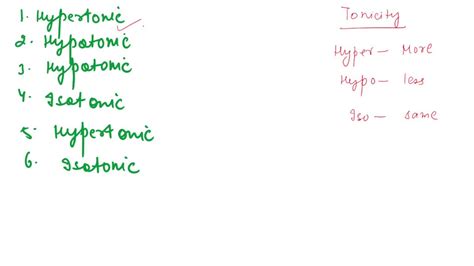 1. Hypertonic
2. Hypotonic
3. Hypotonic
4. Isotonic
5. Hypertonic
6. Isotonic
Tonicity
Hyper — More
Hypo — less
Iso — same